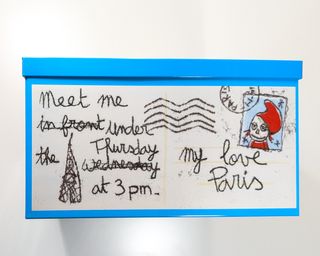 Meet me
in front under
Thursday
the wednesday
at 3 pm.
PARIS
my love
Paris